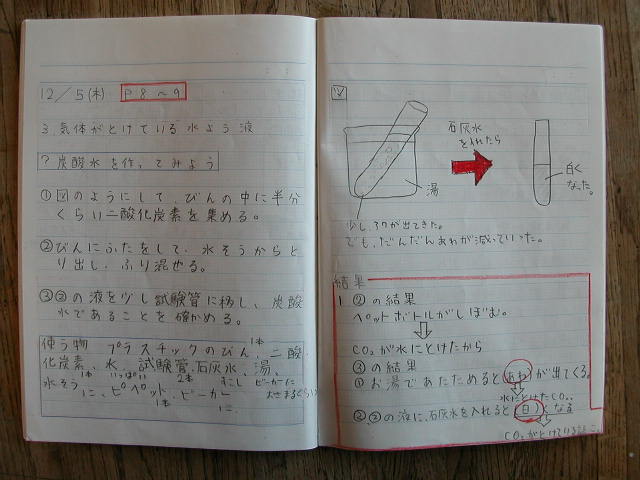 12/5(木) P8〜9
3. 気体がとけている水よう液
? 炭酸水を作ってみよう
①図のようにして、びんの中に半分
くらい二酸化炭素を集める。
②びんにふたをして、水そうからと
り出し、ふり混ぜる。
③②の液を少し試験管に移し、炭酸
水であることを確かめる。
使う物 プラスチックのびん、二酸
1本
化炭素、水、試験管、石灰水、湯、
1本 いっぱい 2本 すこし ビーカーに
水そう、ピペット、ビーカー
1本
図
石灰水
を入れたら
湯
白く
なった。
少し、アワが出てきた。
でも、だんだんあわが減っていった。
結果
1 ②の結果
ペットボトルがしぼむ。
CO₂が水にとけたから
③の結果
① お湯であたためるとあわが出てくる。
水にとけたCO₂
②、②の液に、石灰水を入れると白くなる
CO₂がとけている